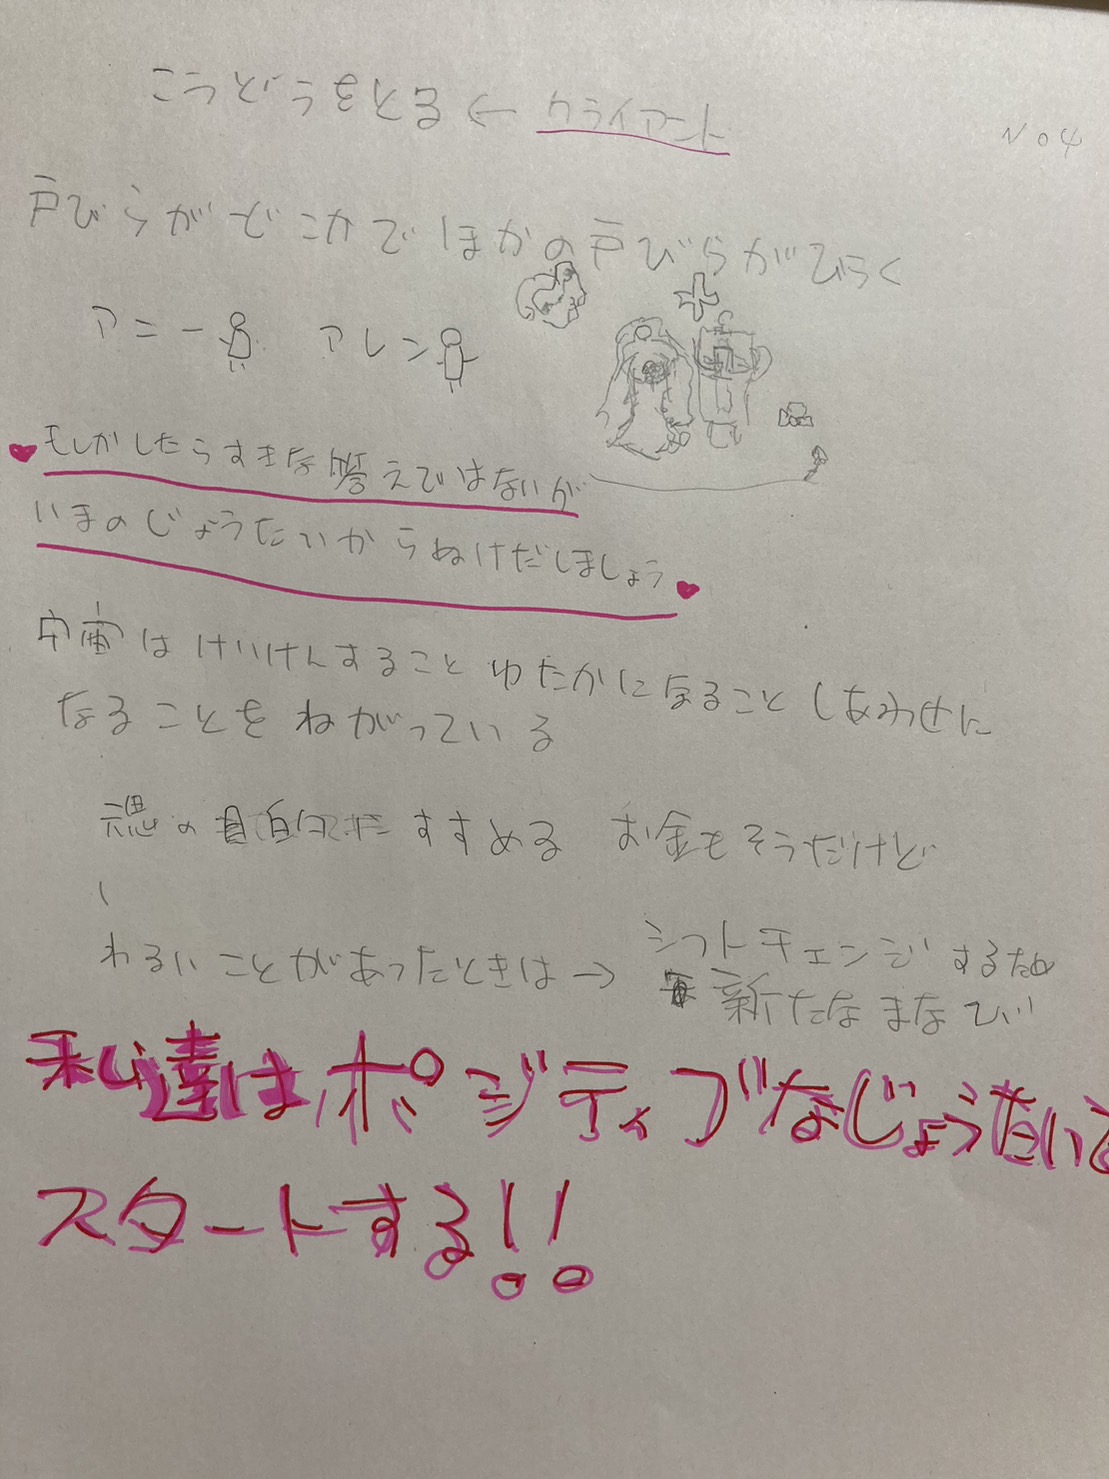 こうどうをとる ← クライアント
No 4
戸びらがどこかでほかの戸びらがひらく
アニー アレン
もしかしたらすきな答えではないが
いまのじょうたいからぬけだしましょう
宇宙はけいけんすること ゆたかになること しあわせに
なることをねがっている
魂の目的 すすめる お金もそうだけど
わるいことがあったときは→ シフトチェンジするため
新たなまなび
私達はポジティブなじょうたいを
スタートする!!